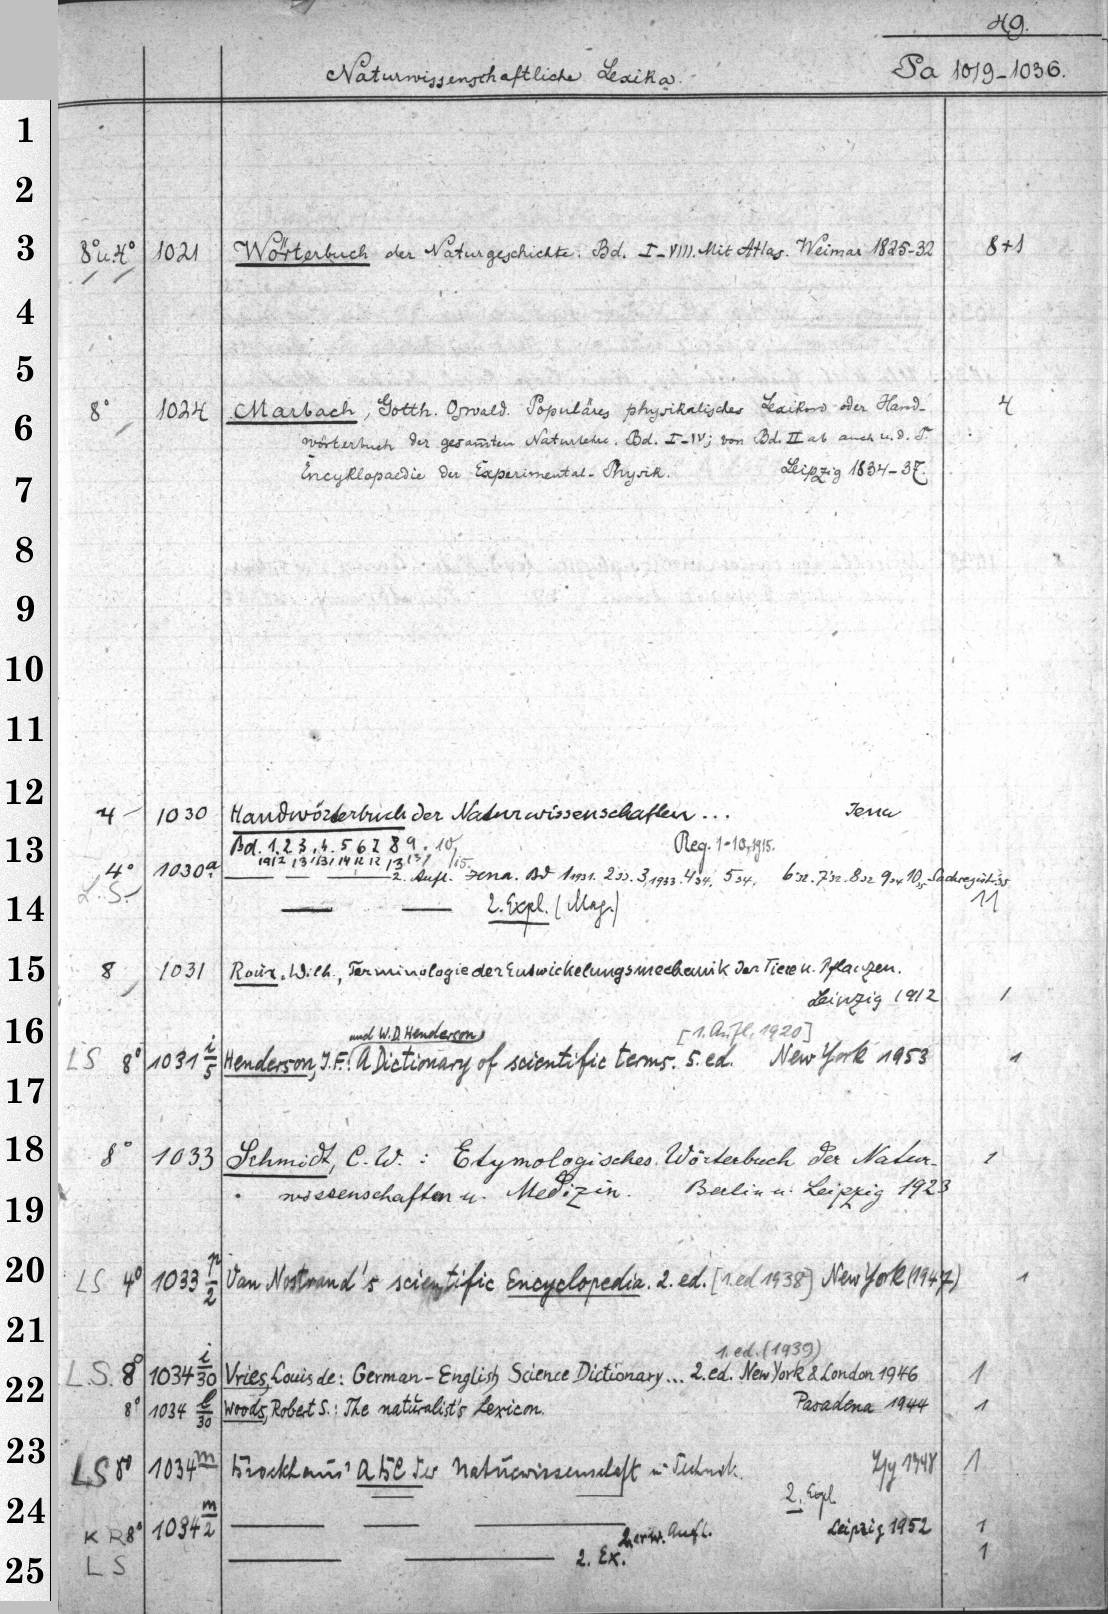 49.
Naturwissenschaftliche Lexika.
Pa 1019-1036.
1
2
3
8° u. 4° 1021 Wörterbuch der Naturgeschichte. Bd. I-VIII. Mit Atlas. Weimar 1825-32 8+1
4
5
6
8° 1024 Marbach, Gotth. Oswald. Populäres physikalisches Lexikon oder Hand- 4
wörterbuch der gesamten Naturlehre. Bd. I-IV; von Bd. II ab auch u. d. T.
7
Encyklopaedie der Experimental-Physik. Leipzig 1834-37.
8
9
10
11
12
4 1030 Handwörterbuch der Naturwissenschaften ... Jena
13
Bd. 1. 2 3. 4. 5 6 7 8 9. 10, Reg. 1-10, 1915.
1912 13 13 14 12 12 13 13 15.
4° 1030a. 2. Aufl. Jena. Bd 1 1931. 2 33. 3, 1933. 4 34. 5 34. 6 32. 7 32. 8 32 9 34 10 35 Sachregist. 35
L.S. 11
14
2. Expl. (Mag.)
15
8 1031 Roux, Wilh., Terminologie der Entwickelungsmechanik der Tiere u. Pflanzen.
Leipzig 1912 1
16
und W.D. Henderson [1. Aufl. 1920]
LS 8° 1031 i/5 Henderson, I. F.: A Dictionary of scientific terms. 5. ed. New York 1953 1
17
18
8° 1033 Schmidt, C. W. : Etymologisches Wörterbuch der Natur- 1
wissenschaften u. Medizin. Berlin u. Leipzig 1923
19
20
LS 4° 1033 n/2 Van Nostrand's scientific Encyclopedia. 2. ed. [1. ed 1938] New York (1947) 1
21
1. ed. (1939)
L.S. 8° 1034 i/30 Vries, Louis de: German-English Science Dictionary ... 2. ed. New York & London 1946 1
22
8° 1034 l/30 Woods, Robert S.: The naturalist's Lexicon. Pasadena 1944 1
23
LS 8° 1034 m Brockhaus' ABC der Naturwissenschaft u. Technik. Lpg 1948 1
2. Expl
24
KR 8° 1034 m/2 2. erw. Aufl. Leipzig 1952 1
LS 2. Ex. 1
25